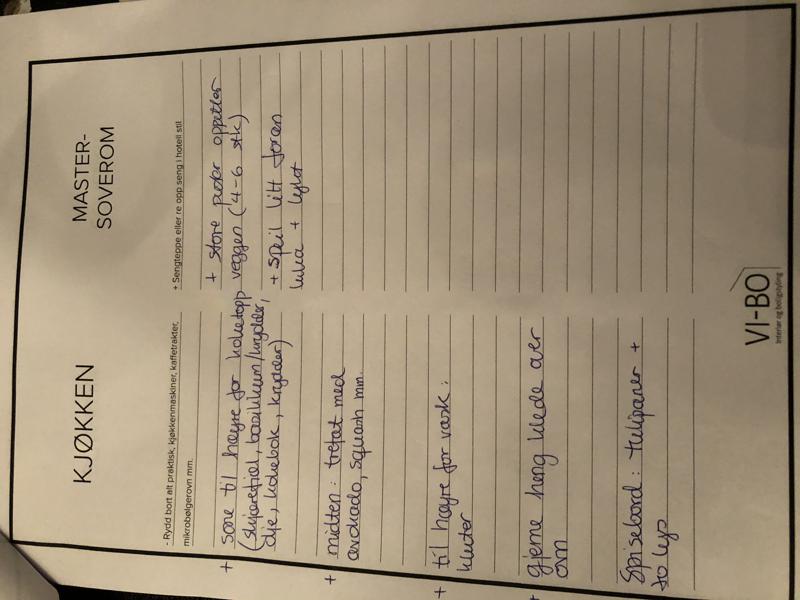 KJØKKEN
- Rydd bort alt praktisk, kjøkkenmaskiner, kaffetrakter,
mikrobølgerovn mm.
+ sone til høyre for koketopp
(skjærefjøl, basilikum/krydder,
olje, kokebok, krydder)
+ midten: trefat med
avokado, squash mm.
+ til høyre for vask:
kluter
+ gjerne heng klede over
ovn
Spisebord: tulipaner +
to lys
MASTER-
SOVEROM
+ Sengteppe eller re opp seng i hotell stil
+ store puter oppetter
veggen (4-6 stk)
+ speil litt foran
luka + lykt
VI-BO
Interiør og boligstyling